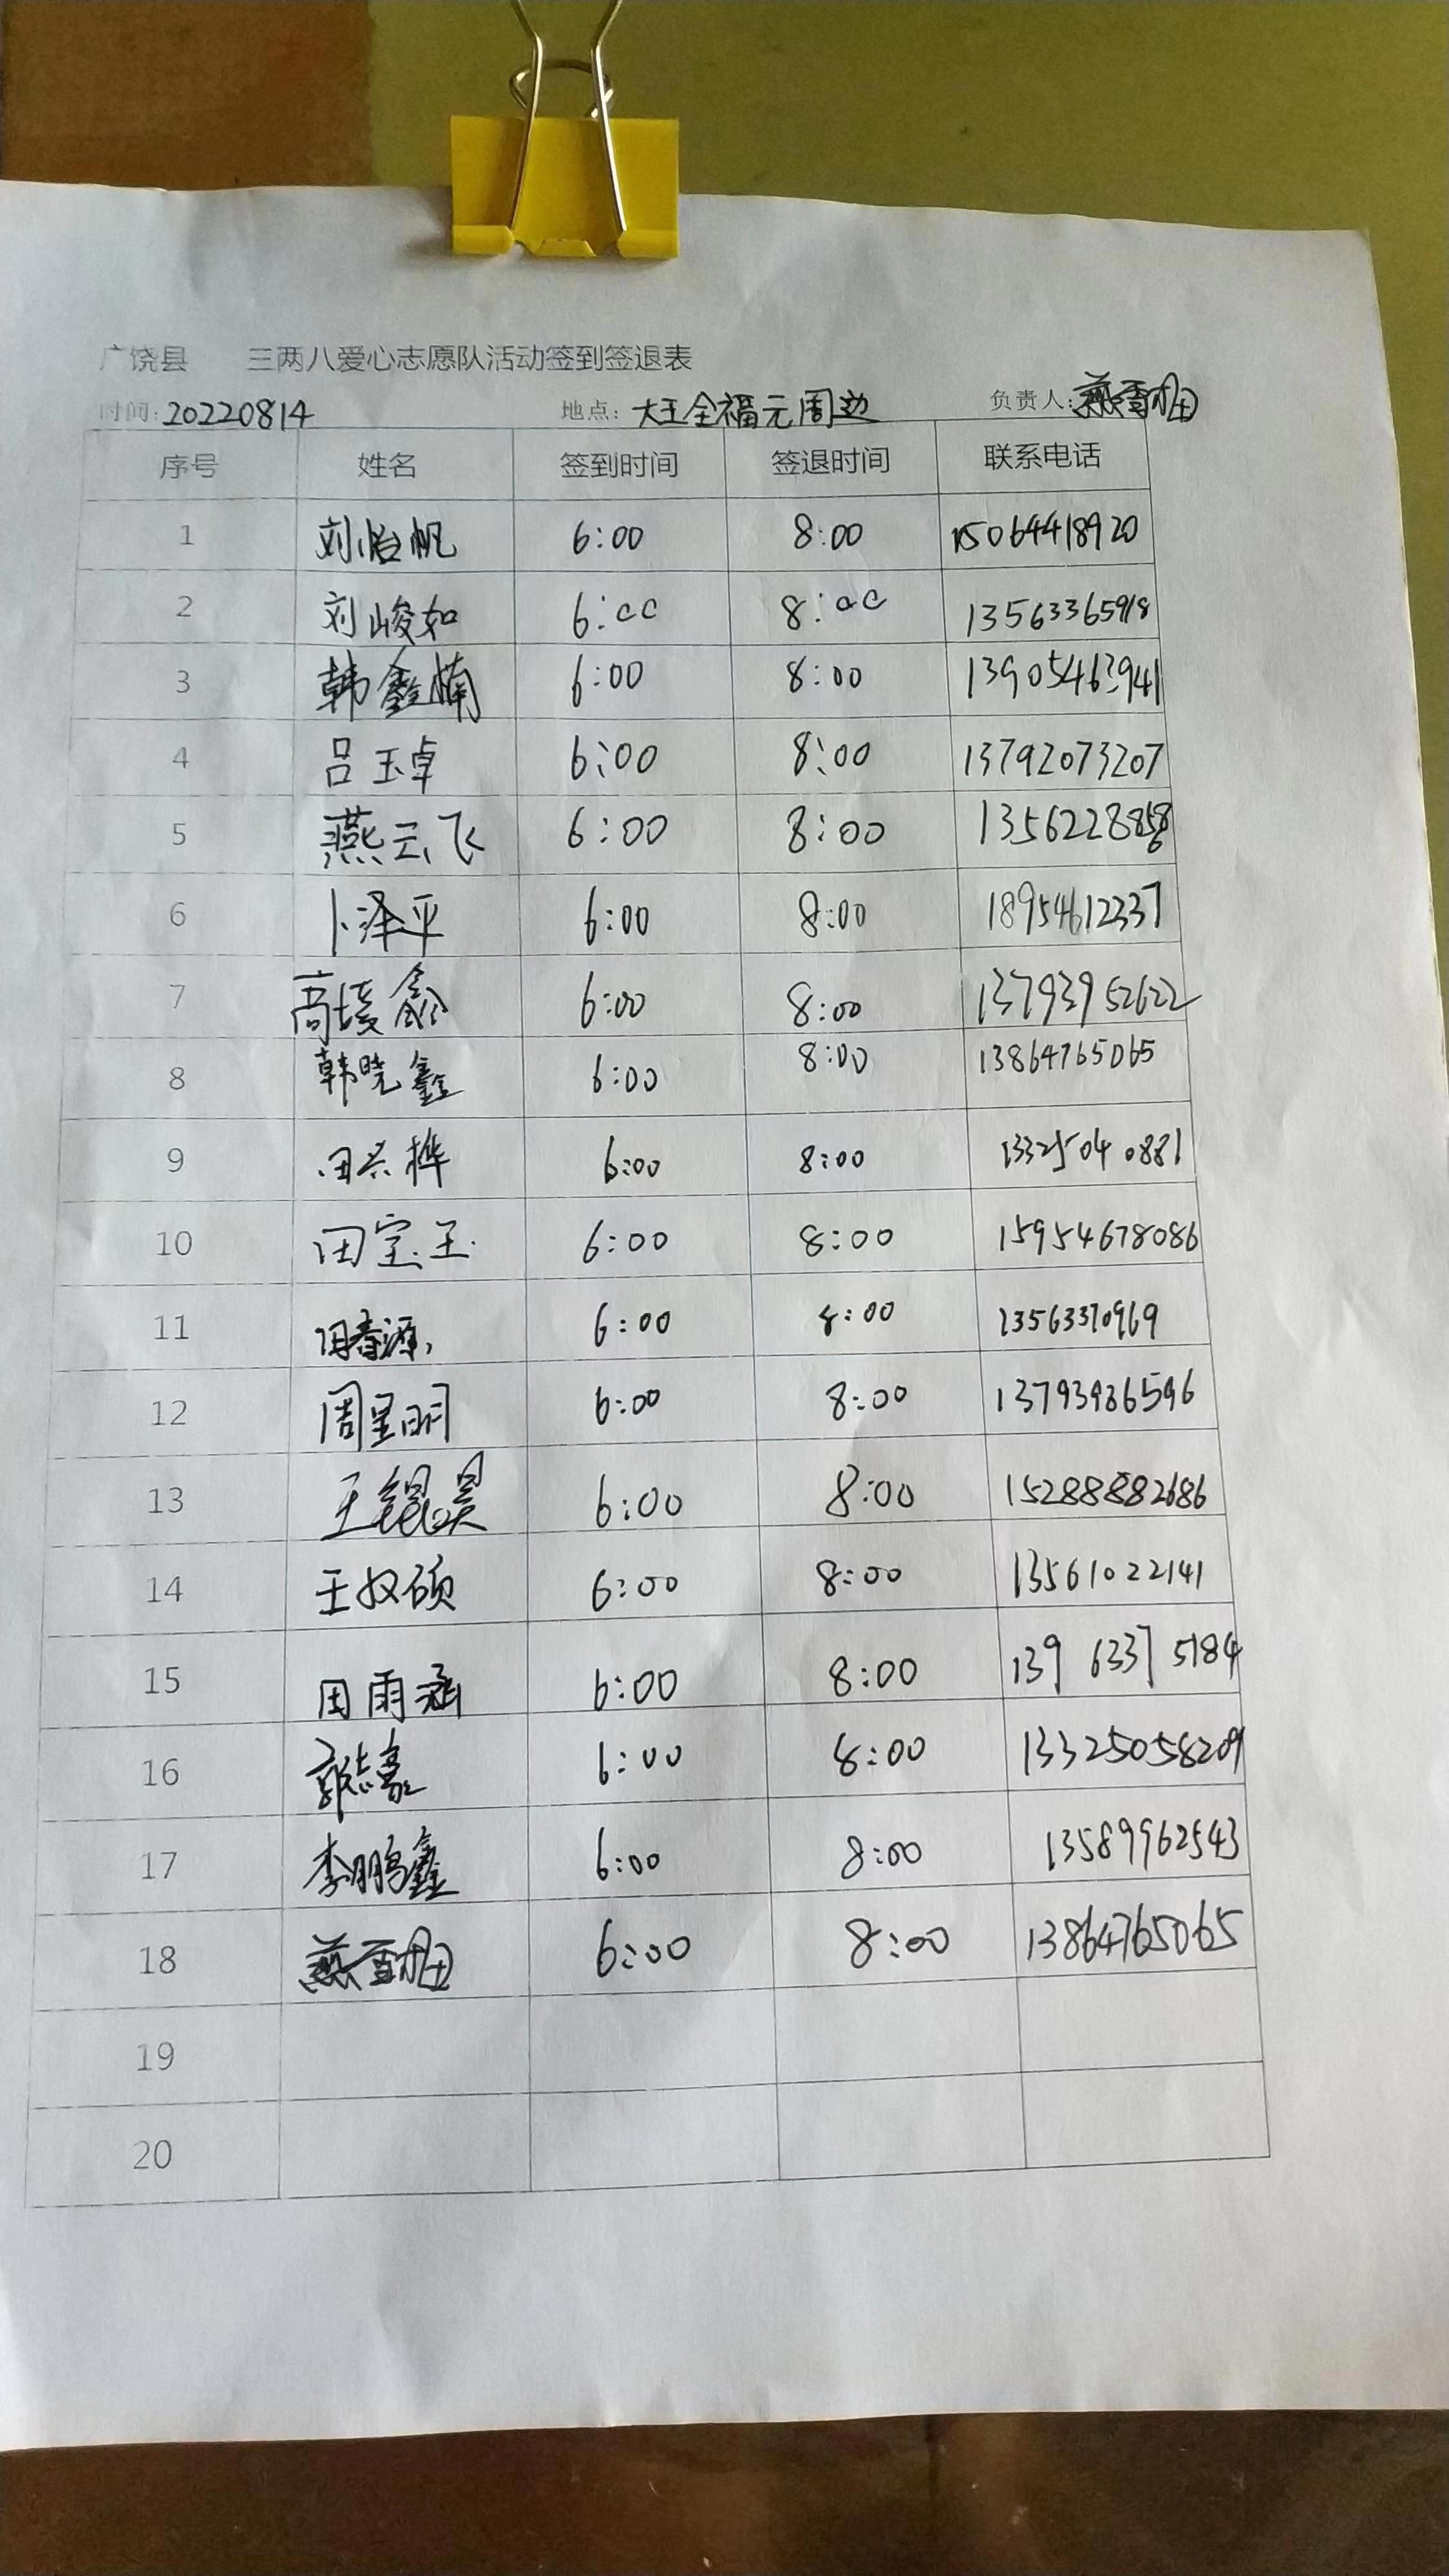 广饶县 三两八爱心志愿队活动签到签退表
时间:20220814 地点:大王全福元周边 负责人:燕雪
序号 姓名 签到时间 签退时间 联系电话
1 刘怡帆 6:00 8:00 15064418920
2 刘峻如 6:00 8:00 13563365918
3 韩鑫楠 6:00 8:00 13905463941
4 吕玉卓 6:00 8:00 13792073207
5 燕云飞 6:00 8:00
6 卜泽平 6:00 8:00 18954612337
7 高媛鑫 6:00 8:00 13793952622
8 韩晓鑫 6:00 8:00 13864765065
9 田兴桦 6:00 8:00 13325040881
10 田宝玉 6:00 8:00 15954678086
11 田春源 6:00 8:00 13563370969
12 周昱明 6:00 8:00 13793936596
13 王锟昊 6:00 8:00 15288882686
14 王奴硕 6:00 8:00 13561022141
15 田雨涵 6:00 8:00 139 6337 5184
16 郭志豪 6:00 8:00 13325058209
17 李鹏鑫 6:00 8:00 13589962543
18 燕雪 6:00 8:00 13864765065
19
20